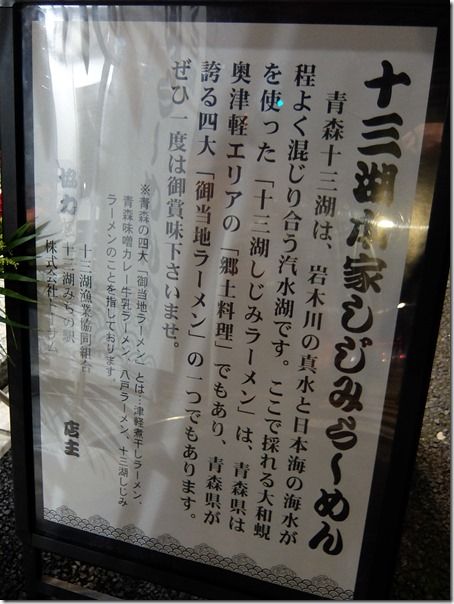 十三湖本家しじみらーめん
青森十三湖は、岩木川の真水と日本海の海水が
程よく混じり合う汽水湖です。ここで採れる大和蜆
を使った「十三湖しじみラーメン」は、青森県は
奥津軽エリアの「郷土料理」でもあり、青森県が
誇る四大「御当地ラーメン」の一つでもあります。
ぜひ一度は御賞味下さいませ。
※青森の四大「御当地ラーメン」とは…津軽煮干しラーメン、
青森味噌カレー牛乳ラーメン、八戸ラーメン、十三湖しじみ
ラーメンのことを指しております。
協力
十三湖漁業協同組合
十三湖みちの駅
株式会社
店主